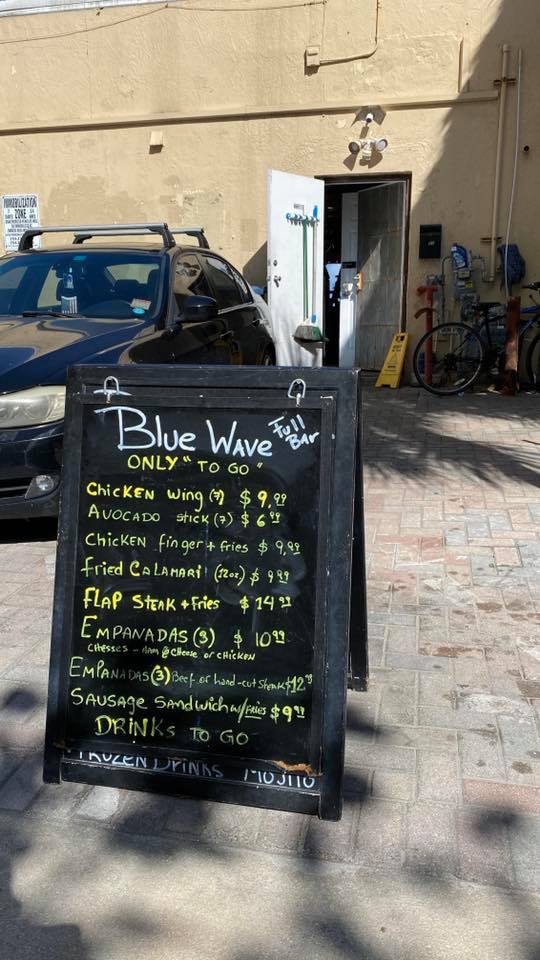 IMMOBILIZATION
ZONE
Blue Wave Full Bar
ONLY "TO GO"
Chicken wing (7) $ 9.99
Avocado stick (7) $ 6.99
Chicken finger + fries $ 9.99
Fried Calamari (12oz) $ 9.99
Flap Steak + Fries $ 14.99
Empanadas (3) $ 10.99
Cheeses - Ham @ Cheese or Chicken
Empanadas (3) Beef or hand-cut Steak $12.99
Sausage Sandwich w/Fries $9.99
Drinks To Go
Frozen Drinks Mojito